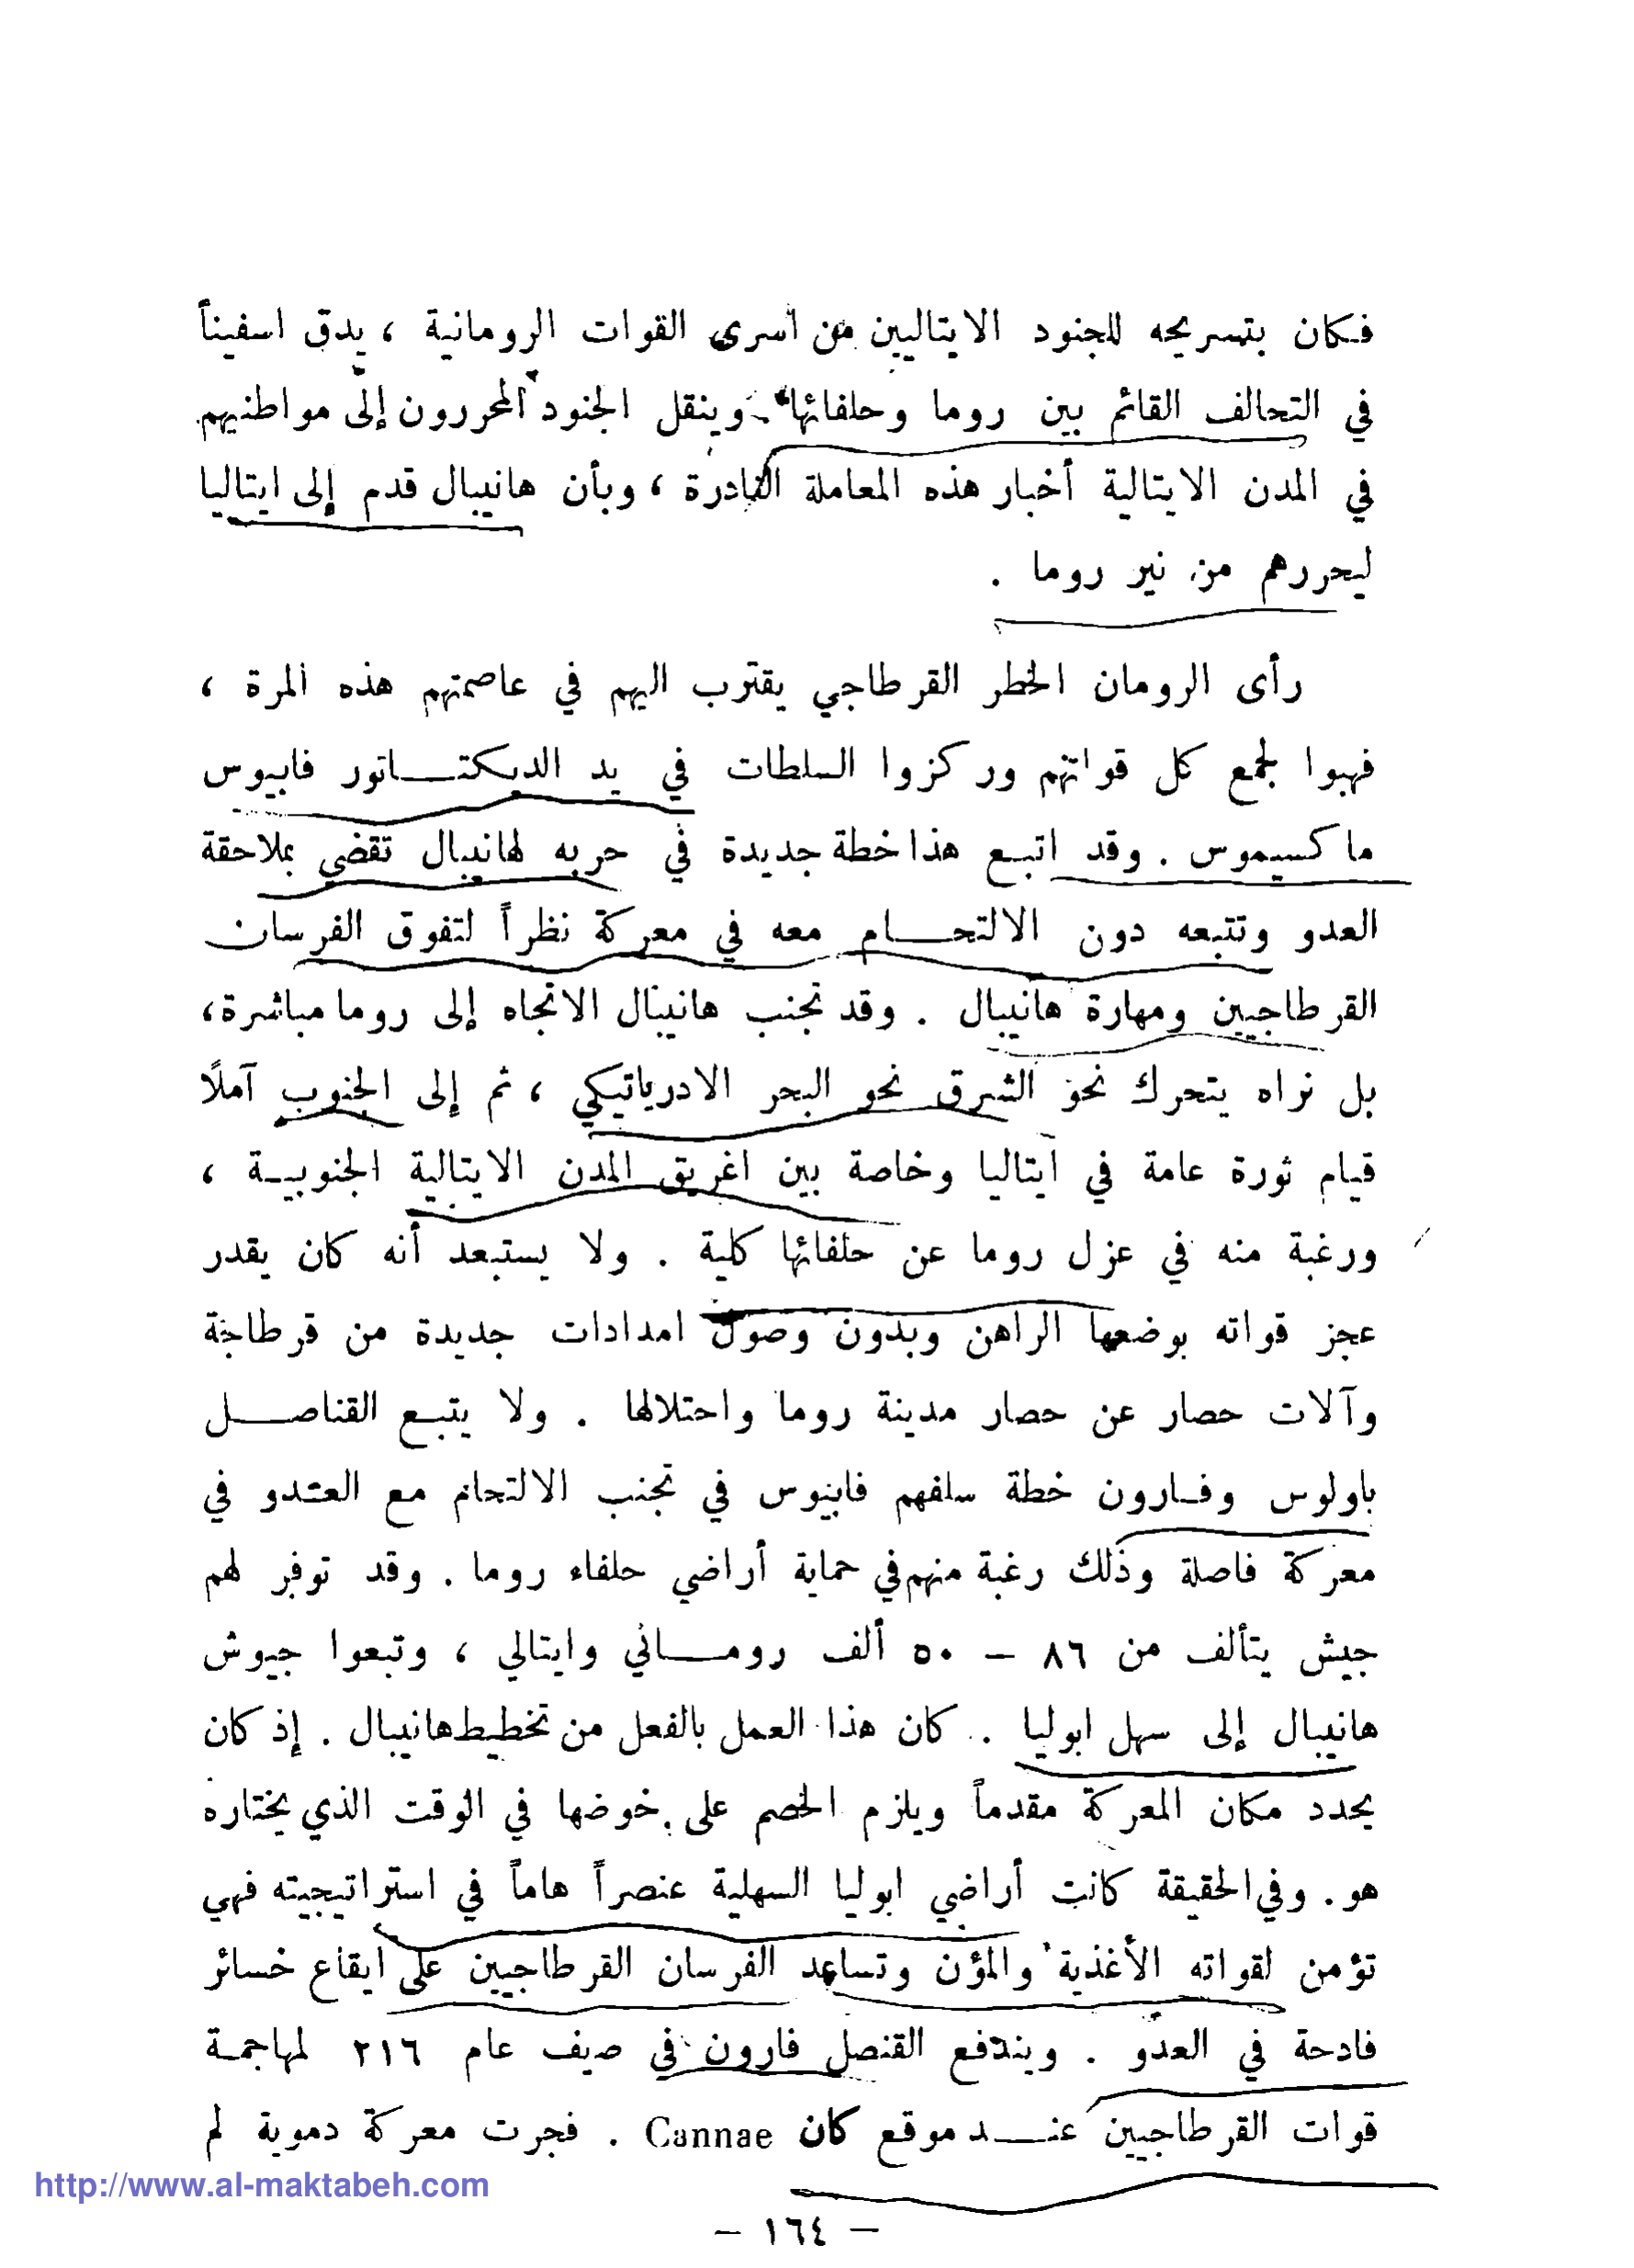 فكان بتسريحه للجنود الايتاليين من أسرى القوات الرومانية ، يدق اسفيناً
في التحالف القائم بين روما وحلفائها . وينقل الجنود المحررون إلى مواطنيهم
في المدن الايتالية أخبار هذه المعاملة النادرة ، وبأن هانيبال قدم إلى ايتاليا
ليحررهم من نير روما .
رأى الرومان الخطر القرطاجي يقترب اليهم في عاصمتهم هذه المرة ،
فهبوا لجمع كل قواتهم وركزوا السلطات في يد الديكتاتور فابيوس
ماكسيموس . وقد اتبع هذا خطة جديدة في حربه لهانيبال تقضي بملاحقة
العدو وتتبعه دون الالتحام معه في معركة نظراً لتفوق الفرسان
القرطاجيين ومهارة هانيبال . وقد تجنب هانيبال الاتجاه إلى روما مباشرة،
بل نراه يتحرك نحو الشرق نحو البحر الادرياتيكي ، ثم إلى الجنوب آملاً
قيام ثورة عامة في ايتاليا وخاصة بين اغريق المدن الايتالية الجنوبية ،
ورغبة منه في عزل روما عن حلفائها كلية . ولا يستبعد أنه كان يقدر
عجز قواته بوضعها الراهن وبدون وصول امدادات جديدة من قرطاجة
وآلات حصار عن حصار مدينة روما واحتلالها . ولا يتبع القناصل
باولوس وفارون خطة سلفهم فابيوس في تجنب الالتحام مع العدو في
معركة فاصلة وذلك رغبة منهم في حماية أراضي حلفاء روما . وقد توفر لهم
جيش يتألف من ٨٦ – ٥٠ ألف روماني وايتالي ، وتبعوا جيوش
هانيبال إلى سهل ابوليا . كان هذا العمل بالفعل من تخطيط هانيبال . إذ كان
يحدد مكان المعركة مقدماً ويلزم الخصم على خوضها في الوقت الذي يختاره
هو . وفي الحقيقة كانت أراضي ابوليا السهلية عنصراً هاماً في استراتيجيته فهي
تؤمن لقواته الأغذية والمؤن وتساعد الفرسان القرطاجيين على ايقاع خسائر
فادحة في العدو . ويندفع القنصل فارون في صيف عام ٢١٦ لمهاجمة
قوات القرطاجيين عند موقع كان Cannae . فجرت معركة دموية لم
http://www.al-maktabeh.com
– ١٦٤ –